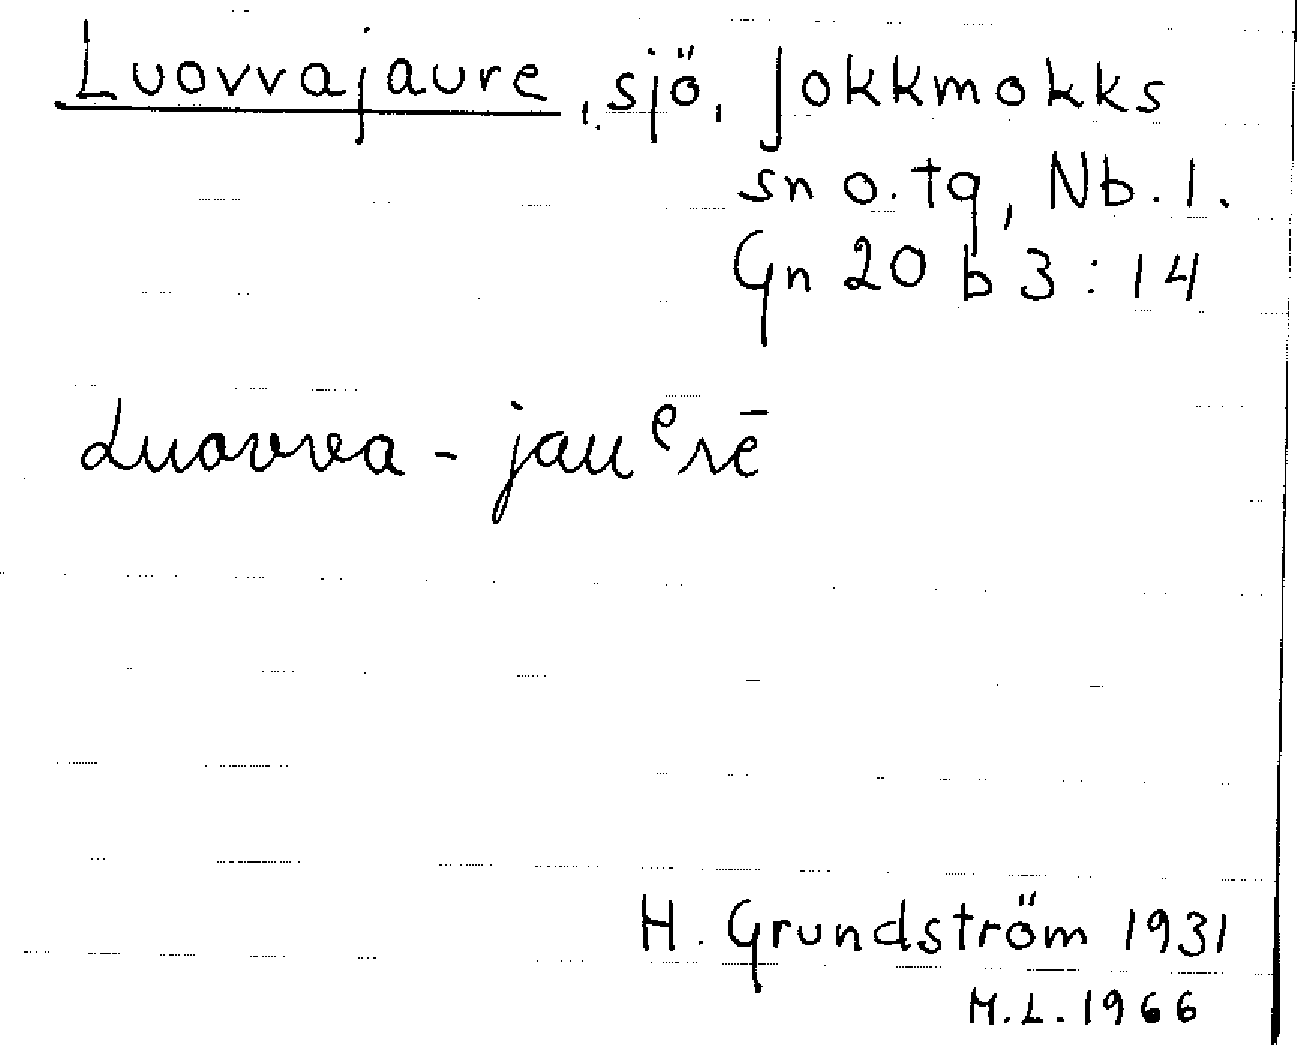 Luovvajaure, sjö, Jokkmokks
sn o. tg, Nb. l.
Gn 20 b 3 : 14
Luovva - jauᵉrē
H. Grundström 1931
M.L. 1966